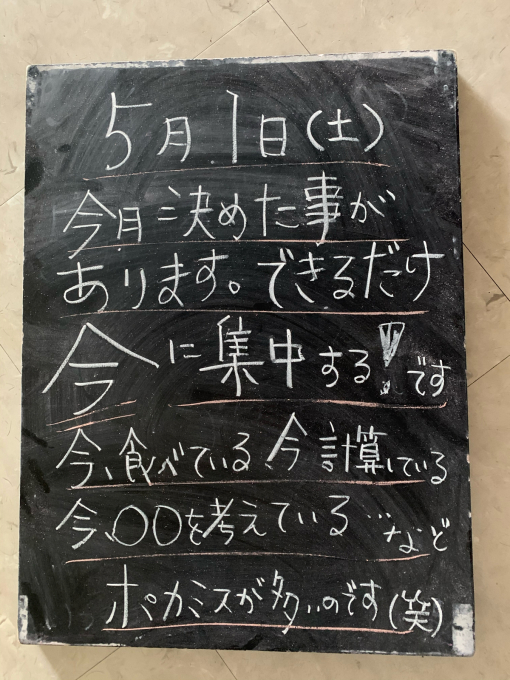 5月1日(土)
今月決めた事が
あります。できるだけ
今に集中する!です
今、食べている、今計算している
今、〇〇を考えている…など
ポカミスが多いのです(笑)